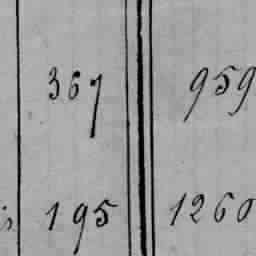 367 959
195 1260